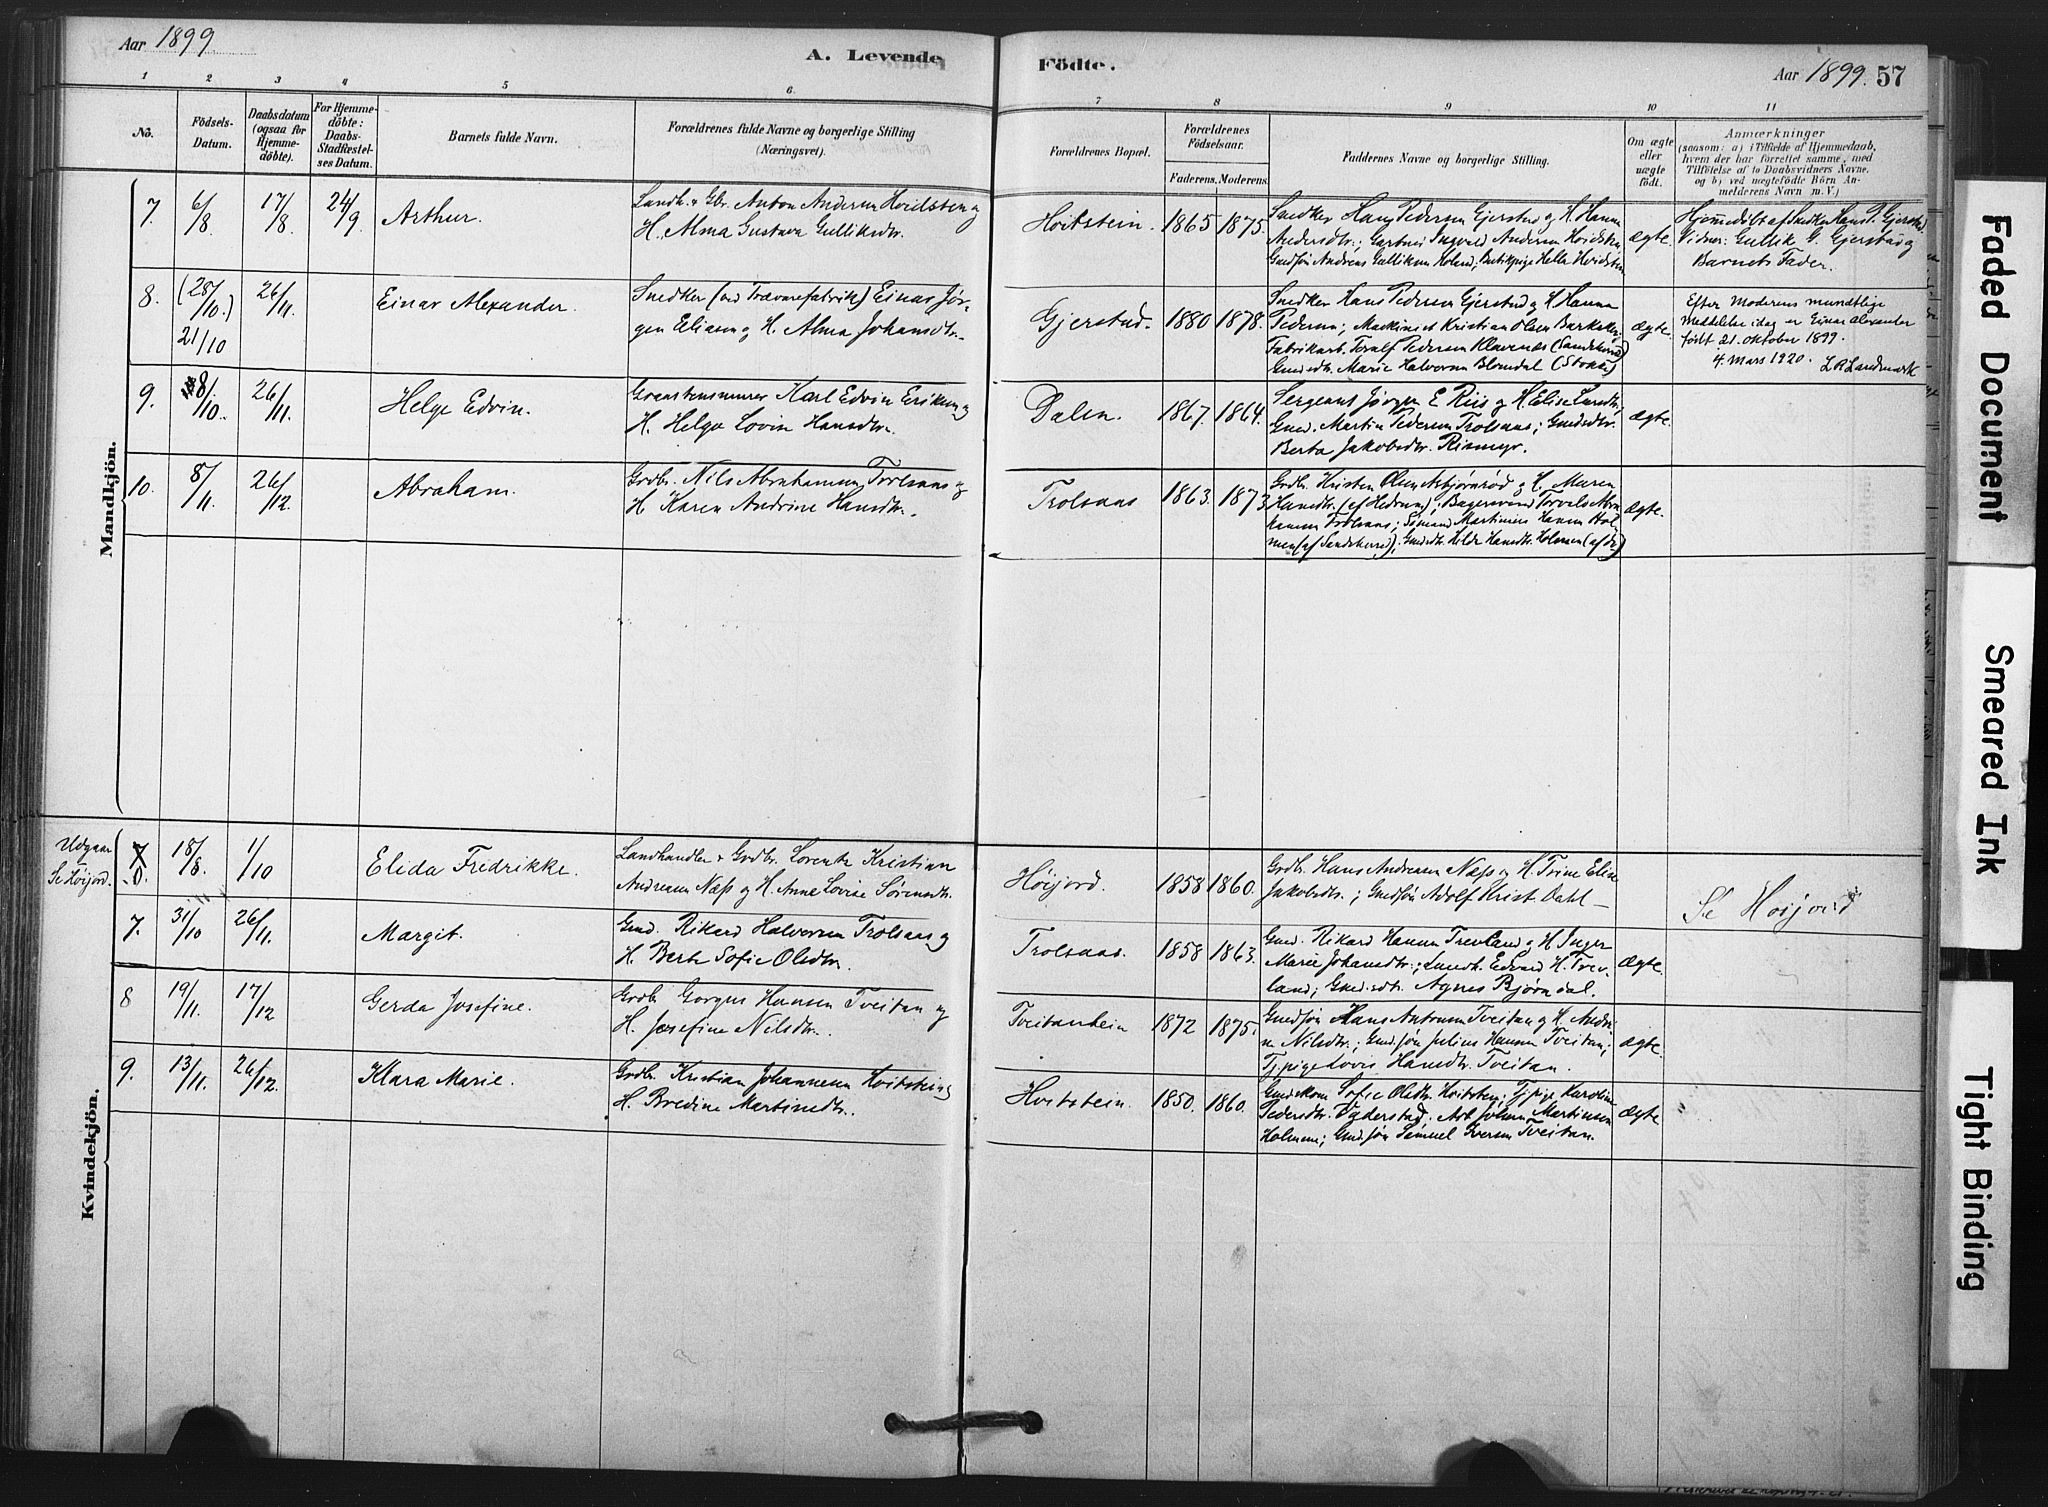 Aar 1899.
A. Levende Födte.
Aar 1899. 57
1 2 3 4 5 6 7 8 9 10 11
No.
Födsels-
Datum.
Daabsdatum
(ogsaa for
Hjemme-
döbte).
For Hjemme-
döbte:
Daabs-
Stadfæstel-
ses Datum.
Barnets fulde Navn.
Forældrenes fulde Navne og borgerlige Stilling
(Næringsvei).
Forældrenes Bopæl.
Forældrenes
Födselsaar.
Faderens. Moderens.
Faddernes Navne og borgerlige Stilling.
Om ægte
eller
uægte
födt.
Anmærkninger
(saasom: a) i Tilfælde af Hjemmedaab,
hvem der har forrettet samme, med
Tilföielse af to Daabsvidners Navne.
og b) ved uægtefödte Börn An-
melderens Navn m. V.)
Mandkjön.
7. 6/8 17/8 24/9 Arthur.
Landh. & Gbr. Anton Andersen Hvidsten og
H. Alma Gustava Gulliksdtr.
Hvitstein. 1865 1875.
Snedker Hans Pedersen Gjerstad og H. Hanna
Andersdtr.; Gartner Ingvald Andersen Hvidsten
Gmdsjön Andreas Gulliksen Holand; Butikpige Helle Hvidsten
ægte.
Hjemmedöbt af Snedker Hans P. Gjerstad.
Vidner: Gullik G. Gjerstad og
Barnets Fader.
8. (28/10.) 21/10 26/11. Einar Alexander.
Snedker (ved Trævarefabrik) Einar Jör-
gen Eliasen og H. Alma Johansdtr.
Gjerstad. 1880 1878.
Snedker Hans Pedersen Gjerstad og H. Hanna
Pedersen; Maskinist Kristian Olsen Barkaker;
Fabrikarb. Toralf Pedersen Klavenes (Sandeherred)
Gmdsdtr. Marie Halvorsen Blomdal (Stokke)
ægte.
Efter Moderens mundtlige
Meddelelse idag er Einar Alexander
födt 21. oktober 1899.
4. Mars 1920. L R Landmark
9. 8/10. 26/11. Helge Edvin.
Graastensmurer Karl Edvin Eriksen og
H. Helga Lovise Hansdtr.
Dalen. 1867. 1864.
Sergeant Jörgen E. Riis og H. Elise Larsdtr.;
Gmd. Martin Pedersen Trolsaas; Gmdsdtr.
Berta Jakobsdtr. Rismyr.
ægte.
10. 8/11. 26/12. Abraham.
Grdbr. Nils Abrahamsen Trolsaas og
H. Karen Andrine Hansdtr.
Trolsaas 1863. 1873
Grdbr. Kristen Olsen Asbjörnröd og H. Maren
Hansdtr. (af Hedrum); Bagersvend Torvald Abra-
hamsen Trolsaas; Sömand Martinius Hansen Hol-
men (af Sandeherred); Gmdsdtr. Hilda Hansdtr. Holmen (af do)
ægte.
Kvindekjön.
Udgaar
Se Höijord.
7 0. 18/8. 1/10 Elida Fredrikke.
Landhandler & Grdbr. Lorentz Kristian
Andreasen Næss og H. Anne Lovise Sörensdtr.
Höijord. 1858 1860.
Grdbr. Hans Andreasen Næss og H. Trine Elise
Jakobsdtr.; Gmdsjön Adolf Krist. Dahl —
Se Höijord
7. 31/10 26/11. Margit.
Gmd. Rikard Halvorsen Trolsaas og
H. Berte Sofie Olsdtr.
Trolsaas. 1858 1863.
Gmd. Rikard Hansen Trevland og H. Inger
Marie Johansdtr.; Landh. Edvard H. Trev-
land; Gmdsdtr. Agnes Björndal.
ægte.
8 19/11. 17/12 Gerda Josefine.
Grdbr. Gorgus Hansen Tveitan og
H. Josefine Nilsdtr.
Tveitanhein 1872 1875.
Gmdsjön Hans Antonsen Tveitan og H. Andri-
ne Nilsdtr.; Gmdsjön Julius Hansen Tveitan;
Tjpige Lovis Hansdtr. Tveitan.
ægte
9. 13/11. 26/12. Klara Marie.
Grdbr. Kristian Johannesen Hvitstein og
H. Bredine Martinsdtr.
Hvitstein. 1850. 1860.
Gmdskone Sofie Olsdtr. Hvitsten; Tjpige Karoline
Pedersdtr. Ygderstad. Arb. Johan Martinsen
Holmen; Gmdsjön Samuel Iversen Tveitan.
ægte
Faded Document
Smeared Ink
Tight Binding